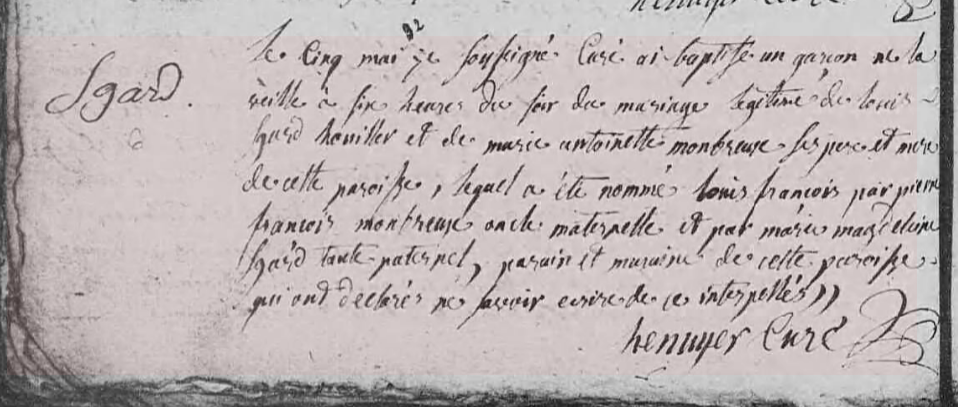 henuyer Curé
92
Le Cinq mai je soussigné Curé ai baptisé un garcon né la
Sgard.
veille à six heures du soir du mariage legitime de louis
Sgard houiller et de marie antoinette monbreuse ses pere et mere
de cette paroisse, lequel a été nommé louis françois par pierre
françois monbreuse oncle maternelle et par marie magdeleine
Sgard tante paternel, parain et maraine de cette paroisse
qui ont declarés ne savoir ecrire de ce interpellés
henuyer Curé